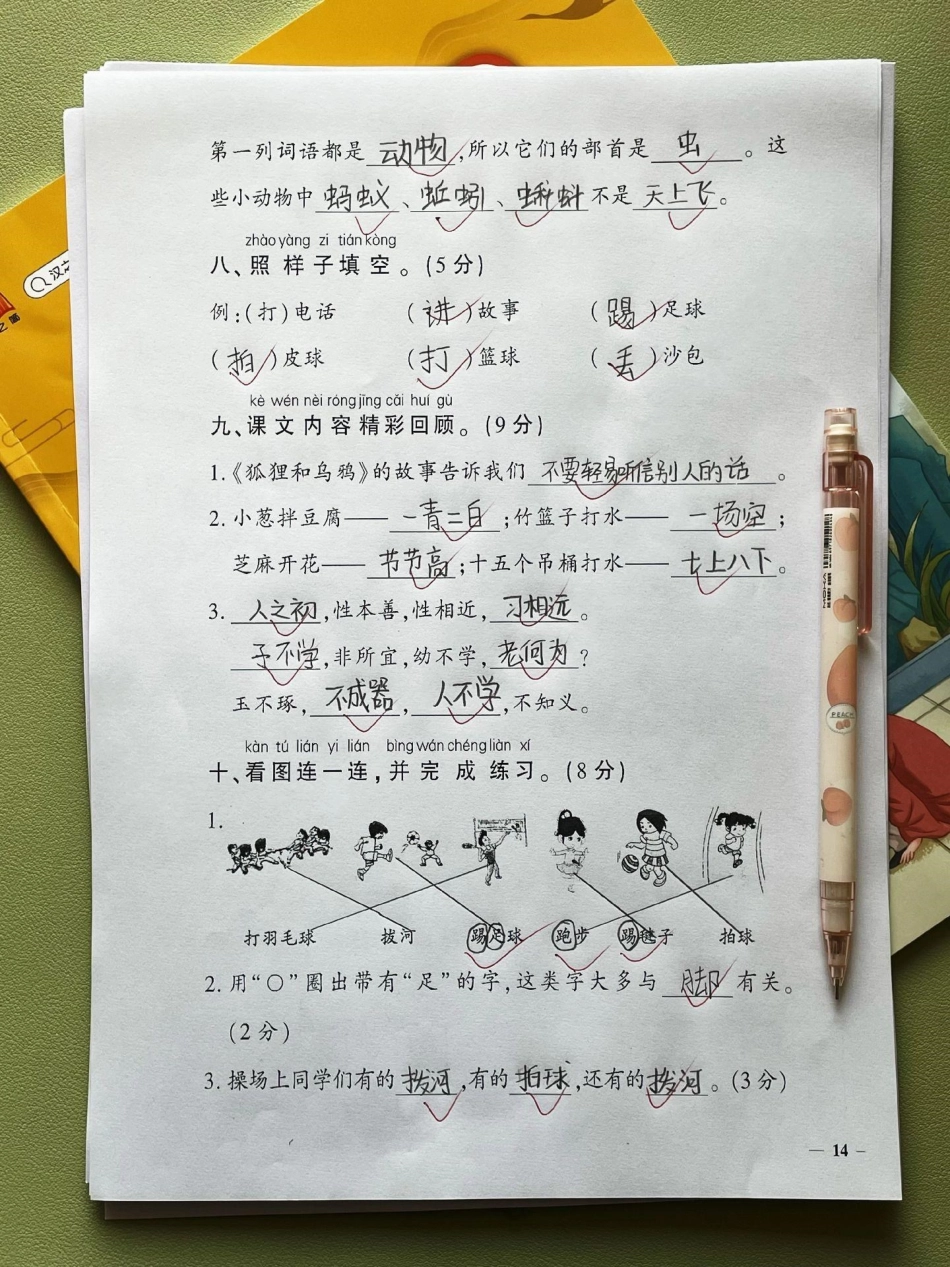 第一列词语都是动物,所以它们的部首是虫。这
些小动物中蚂蚁、蚯蚓、蝌蚪不是天上飞。
zhào yàng zi tián kòng
八、照样子填空。(5分)
例:(打)电话 (讲)故事 (踢)足球
(拍)皮球 (打)篮球 (丢)沙包
kè wén nèi róng jīng cǎi huí gù
九、课文内容精彩回顾。(9分)
1.《狐狸和乌鸦》的故事告诉我们不要轻易听信别人的话。
2.小葱拌豆腐——一青二白;竹篮子打水——一场空;
芝麻开花——节节高;十五个吊桶打水——七上八下。
3.人之初,性本善,性相近,习相远。
子不学,非所宜,幼不学,老何为?
玉不琢,不成器,人不学,不知义。
kàn tú lián yi lián bìng wán chéng liàn xí
十、看图连一连,并完成练习。(8分)
1.
打羽毛球 拔河 踢足球 跑步 踢毽子 拍球
2.用“○”圈出带有“足”的字,这类字大多与脚有关。
(2分)
3.操场上同学们有的拨河,有的拍球,还有的拨河。(3分)
— 14 –